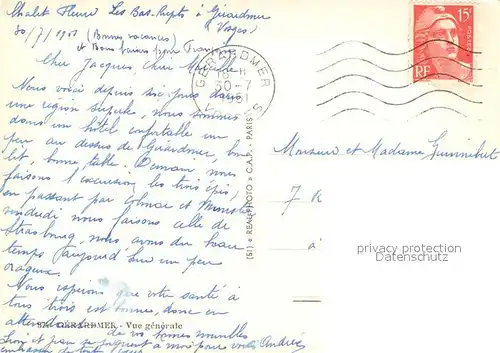 Chalet Fleuri Les Bas-Rupts à Gérardmer
30/7/1951 (Bonnes vacances) (Vosges)
et Bons baisers pour
Cher Jacques, Chère Mireille
Nous voici depuis six jours dans
une région superbe, nous sommes
dans un hôtel confortable un
peu au dessus de Gérardmer, bon
lit, bonne table. Demain, nous
faisons l'excursion les trois épis,
en passant par Colmar et Munster
vendredi nous faisons celle de
Strasbourg, nous avons du beau
temps, aujourd'hui un peu
orageux.
Nous espérons que votre santé à
tous trois est bonne, donc en
attendant de vos bonnes nouvelles
et Jean se joignent à moi pour vous
André
51. GÉRARDMER - Vue générale
GERARDMER
30-7
VOSGES
15F
POSTES
RF
(51) « REAL-PHOTO » C.A.P. - PARIS
Monsieur et Madame
7 R
à
privacy protection
DELCAMPE